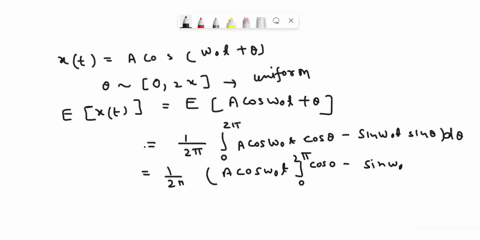 x(t) = A cos (ω₀t + θ)
θ ~ [0, 2x] → uniform
E [x(t)] = E [A cos ω₀t + θ]
:= 1/2π ∫₀^2π A cos ω₀t cos θ − sin ω₀t sin θ) dθ
= 1/2π (A cos ω₀t ]₀^2π cos θ − sin ω₀